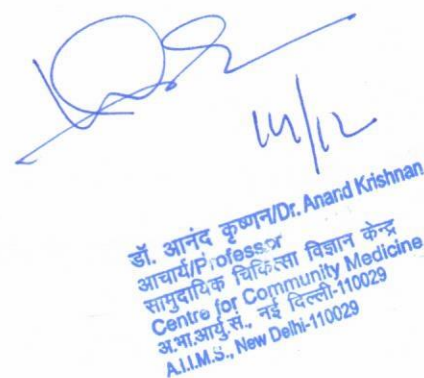 14/12
डॉ. आनंद कृष्णन/Dr. Anand Krishnan
आचार्य/Professor
सामुदायिक चिकित्सा विज्ञान केन्द्र
Centre for Community Medicine
अ.भा.आर्यु.सं., नई दिल्ली-110029
A.I.I.M.S., New Delhi-110029